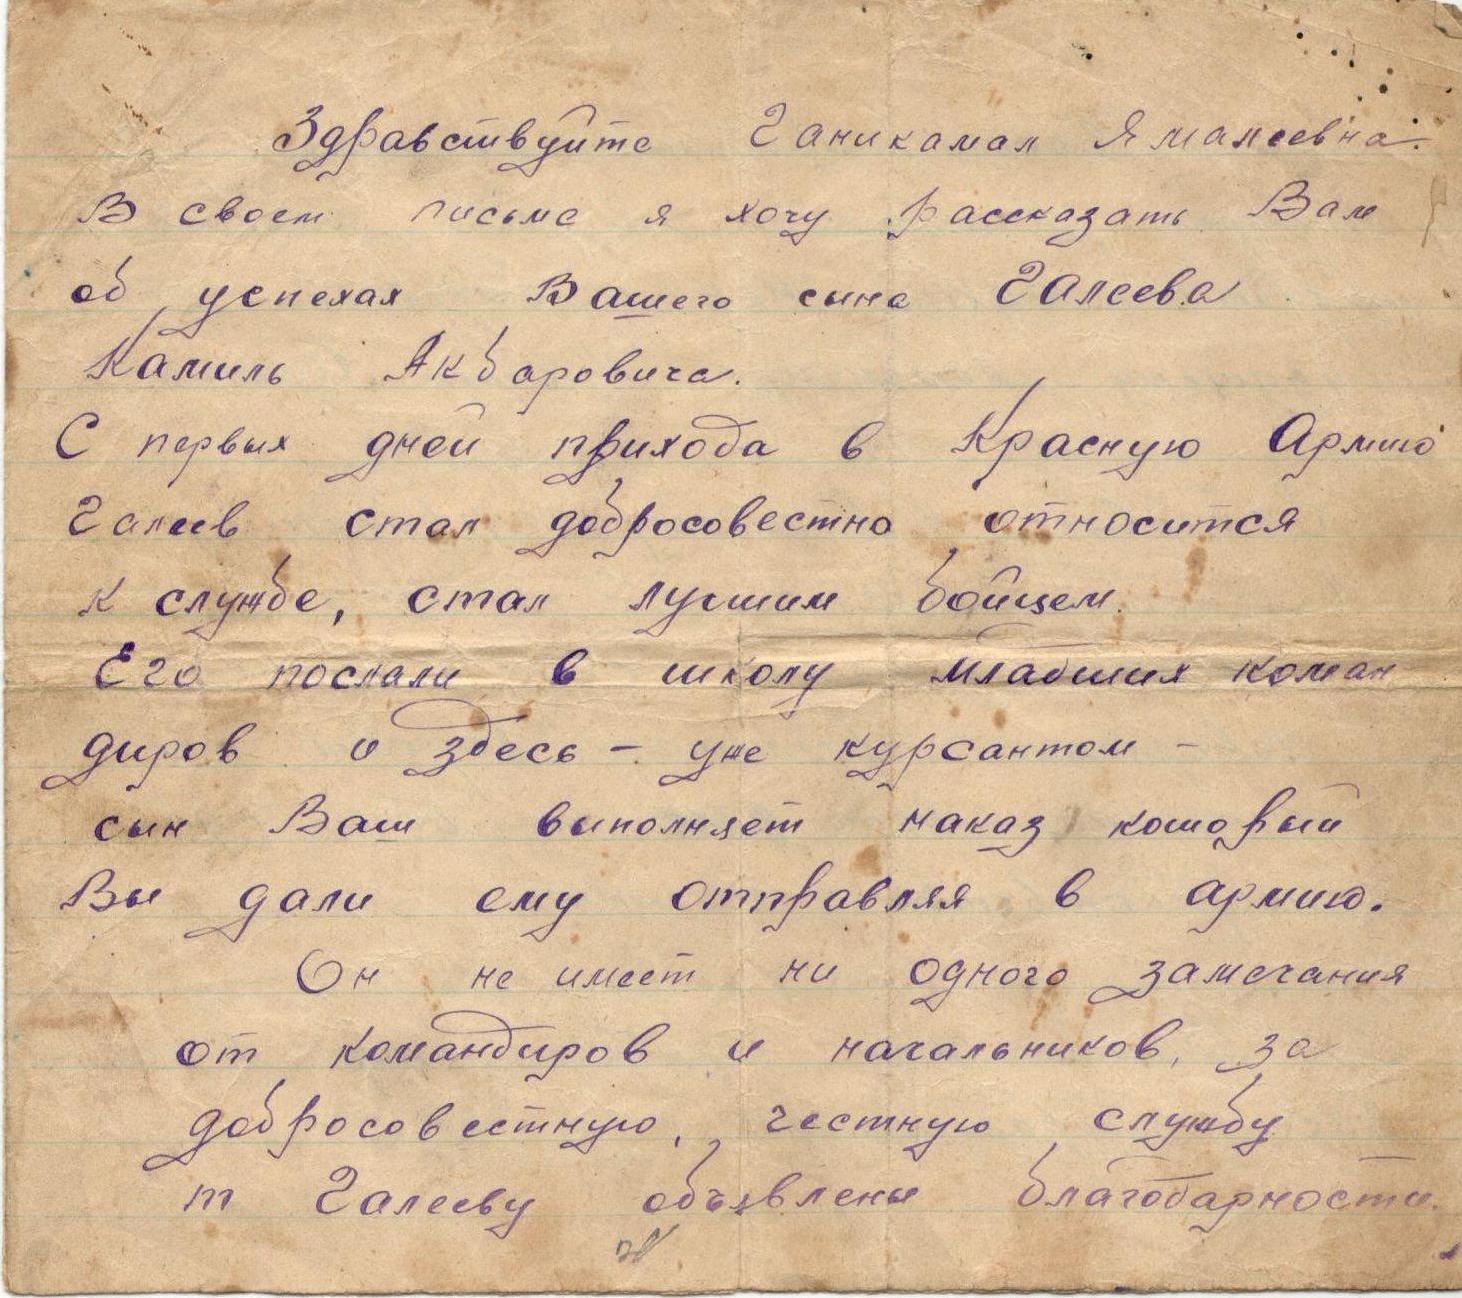 Здравствуйте Ганикамал Ямалеевна.
В своем письме я хочу рассказать Вам
об успехах Вашего сына Галеева
Камиль Акбаровича.
С первых дней прихода в Красную Армию
Галеев стал добросовестно относится
к службе, стал лучшим бойцем.
Его послали в школу младших коман
диров и здесь – уже курсантом –
сын Ваш выполняет наказ который
Вы дали ему отправляя в армию.
Он не имеет ни одного замечания
от командиров и начальников, за
добросовестную, честную службу
т Галееву объявлены благодарности.